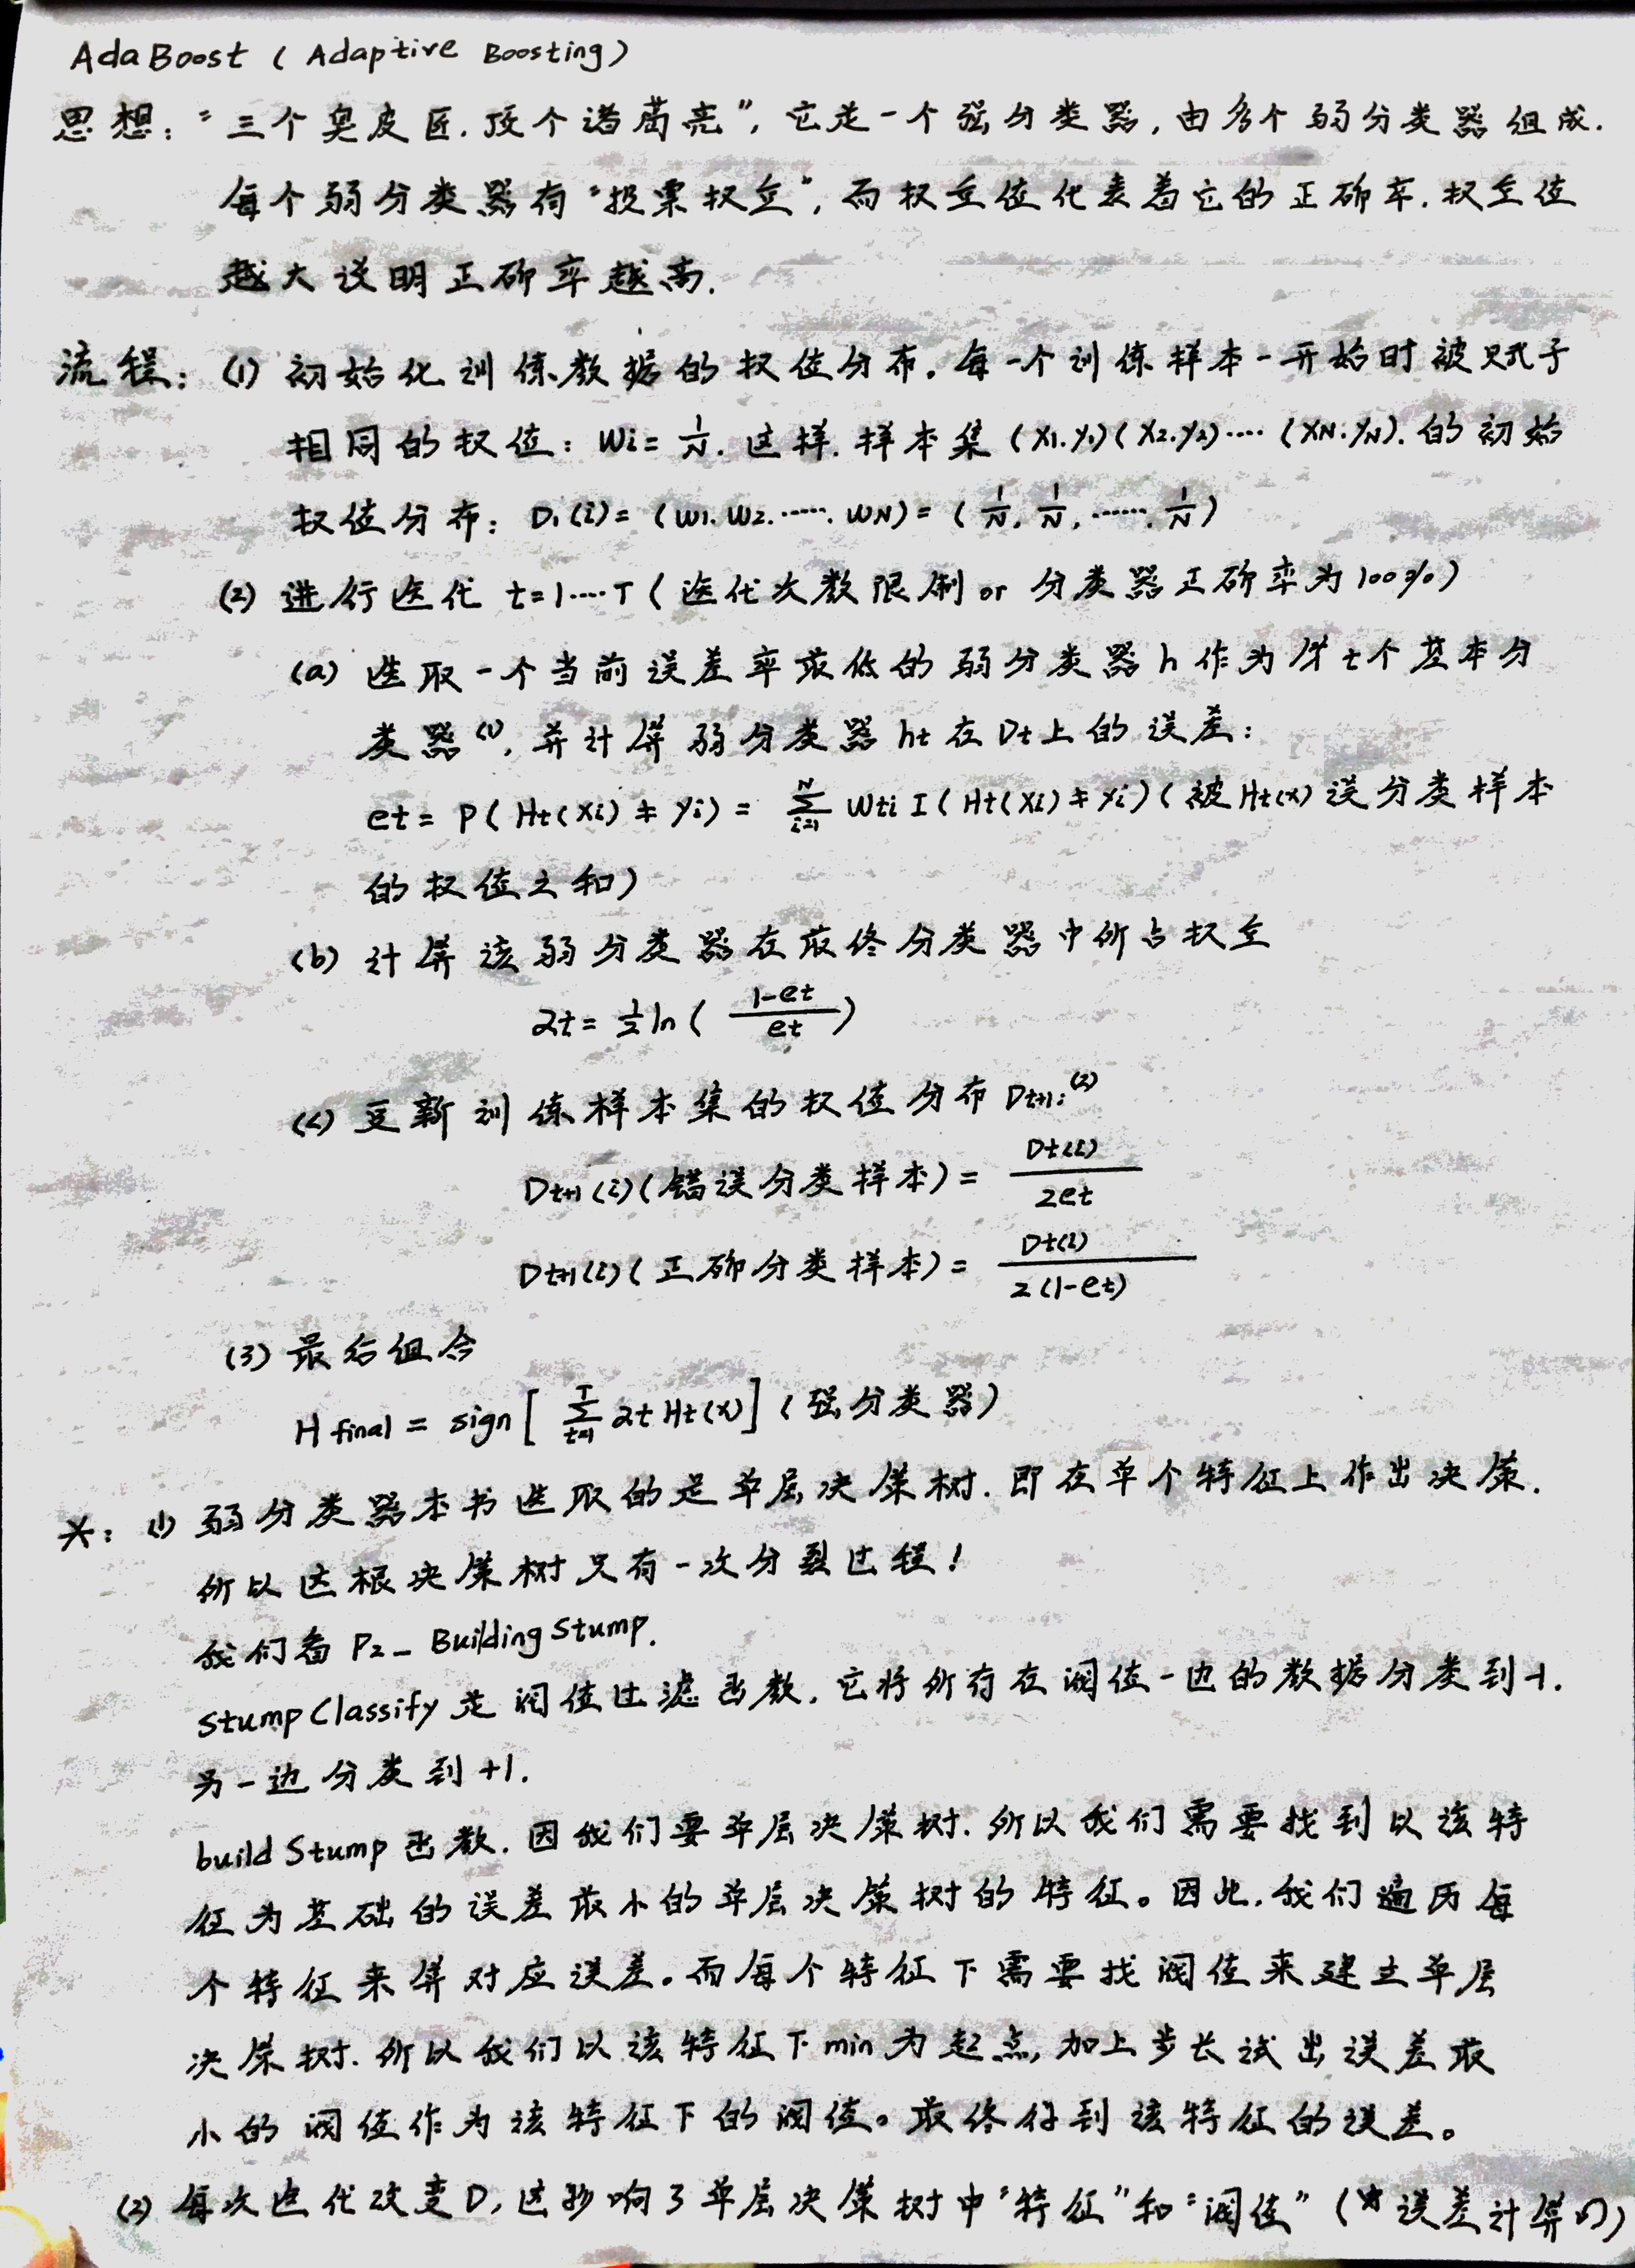 AdaBoost (Adaptive Boosting)
思想:“三个臭皮匠,顶个诸葛亮”,它是一个强分类器,由多个弱分类器组成.
每个弱分类器有“投票权重”,而权重值代表着它的正确率.权重值
越大说明正确率越高.
流程: (1) 初始化训练数据的权值分布。每一个训练样本一开始时被赋予
相同的权值: Wi = 1/N. 这样.样本集 (X1.Y1)(X2.Y2)····(XN.YN). 的初始
权值分布: D1(i) = (w1.w2.·····.wN) = (1/N, 1/N, ······. 1/N)
(2) 进行迭代 t=1····T (迭代次数限制 or 分类器正确率为100%)
(a) 选取一个当前误差率最低的弱分类器 h 作为第t个基本分
类器(1), 并计算弱分类器 ht 在 Dt上的误差:
et = P(Ht(xi) ≠ yi) = Σ_{i=1}^{N} Wti I(Ht(xi) ≠ yi) (被Ht(x)误分类样本
的权值之和)
(b) 计算该弱分类器在最终分类器中所占权重
αt = 1/2 ln( (1-et)/et )
(c) 更新训练样本集的权值分布 Dt+1:(2)
Dt+1(i)(错误分类样本) = Dt(i) / 2et
Dt+1(i)(正确分类样本) = Dt(i) / 2(1-et)
(3) 最后组合
H final = sign[ Σ_{t=1}^{T} αt Ht(x) ] (强分类器)
关: (1) 弱分类器本书选取的是单层决策树.即在单个特征上作出决策.
所以这根决策树只有一次分裂过程!
我们看 P2_ Building Stump.
stump Classify 是阈值过滤函数.它将所有在阈值一边的数据分类到-1.
另一边分类到+1.
build Stump 函数.因我们要单层决策树.所以我们需要找到以该特
征为基础的误差最小的单层决策树的特征。因此.我们遍历每
个特征来算对应误差。而每个特征下需要找阈值来建立单层
决策树.所以我们以该特征下min为起点,加上步长试出误差最
小的阈值作为该特征下的阈值。最终得到该特征的误差。
(2) 每次迭代改变D,这影响了单层决策树中“特征”和“阈值” (*误差计算的)